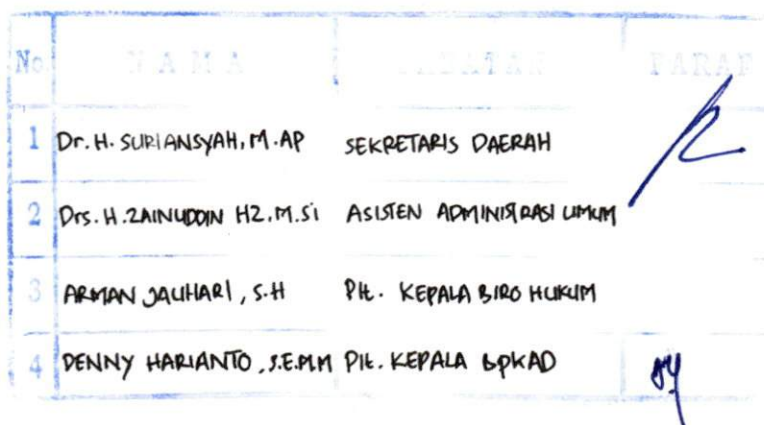 No NAMA JABATAN PARAF
1 Dr. H. SURIANSYAH, M.AP SEKRETARIS DAERAH
2 Drs. H. ZAINUDDIN HZ, M.Si ASISTEN ADMINISTRASI UMUM
3 ARMAN JAUHARI, S.H Plt. KEPALA BIRO HUKUM
4 DENNY HARIANTO, S.E.MM Plt. KEPALA BPKAD